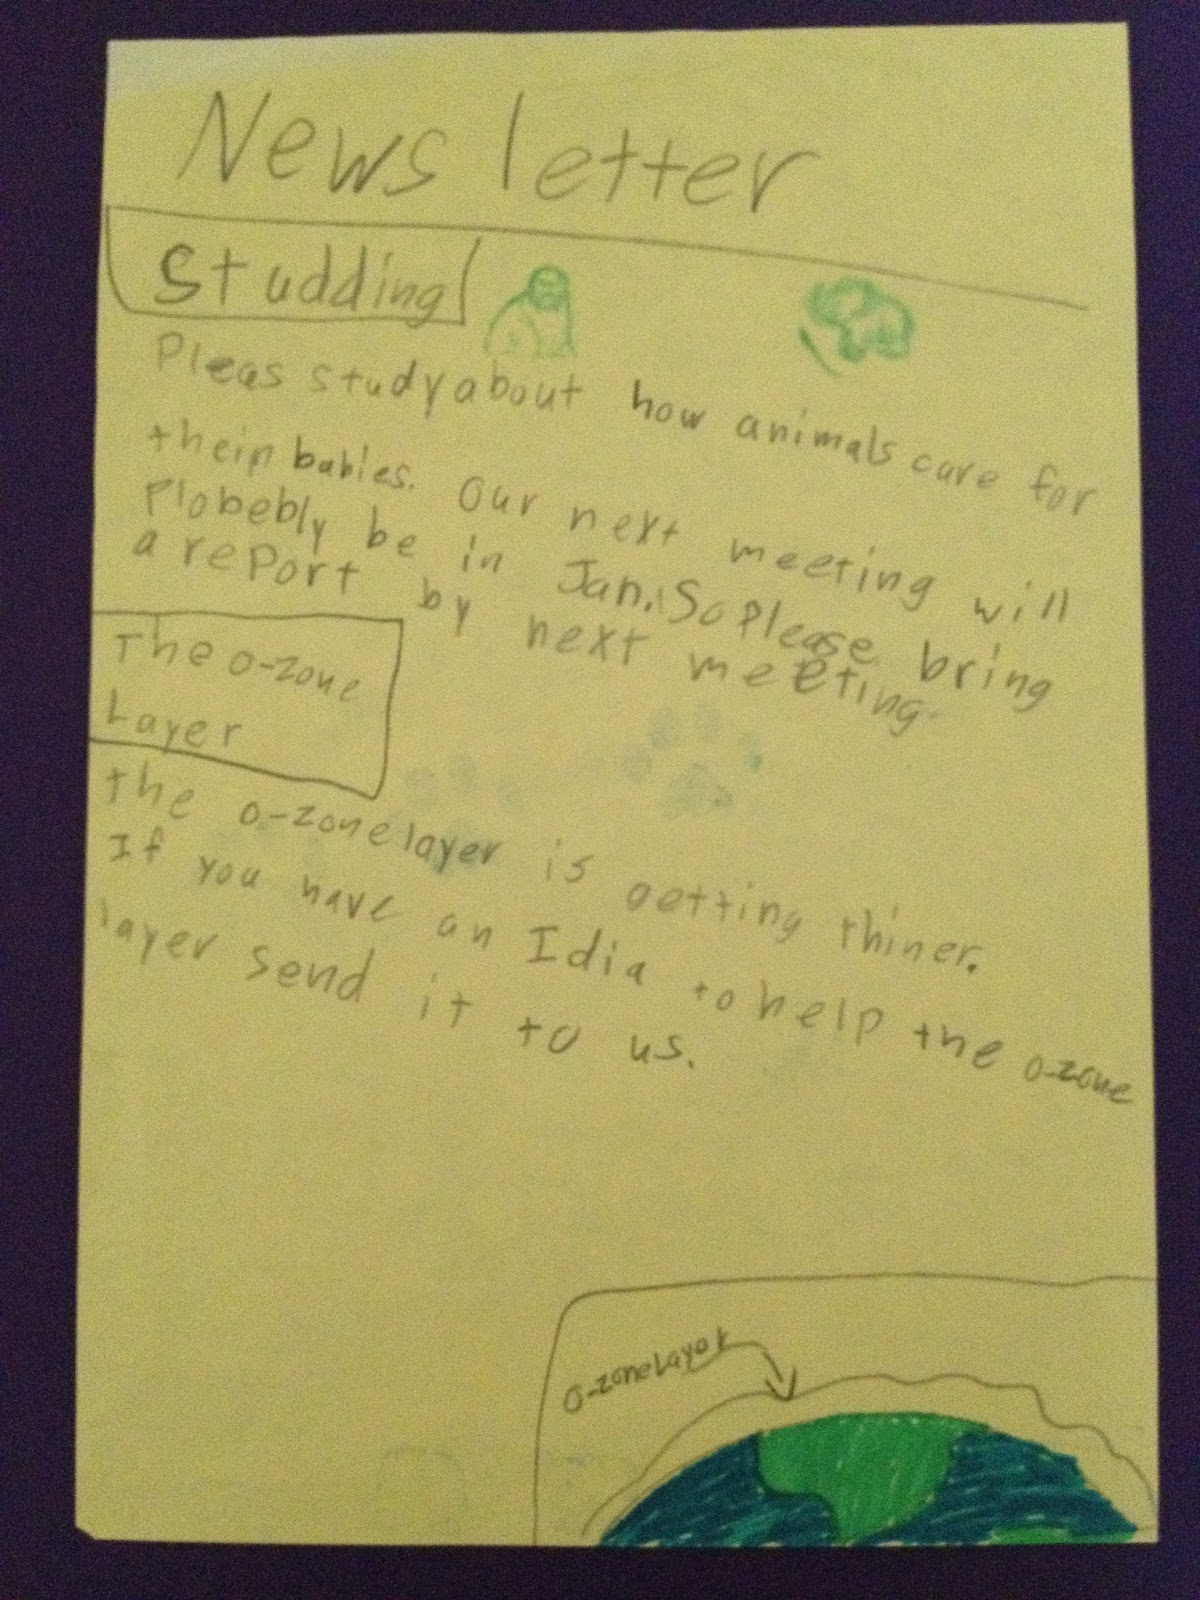 News letter
Studding
Pleas study about how animals care for
their babies. Our next meeting will
Plobebly be in Jan. So Please bring
a rePort by next meeting.
The o-zone
Layer
the o-zone layer is getting thiner.
If you have an Idia to help the o-zone
layer send it to us.
o-zone Layor